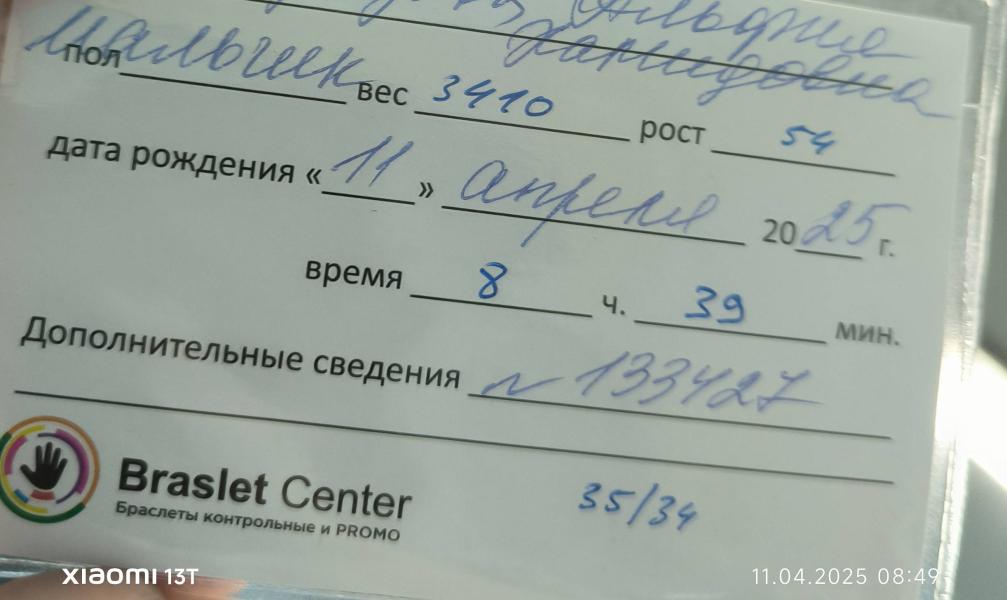 Альфия
Хамидовна
пол Мальчик вес 3410 рост 54
дата рождения « 11 » апреля 2025 г.
время 8 ч. 39 мин.
Дополнительные сведения № 133427
35/34
Braslet Center
Браслеты контрольные и PROMO
XIAOMI 13T
11.04.2025 08:49